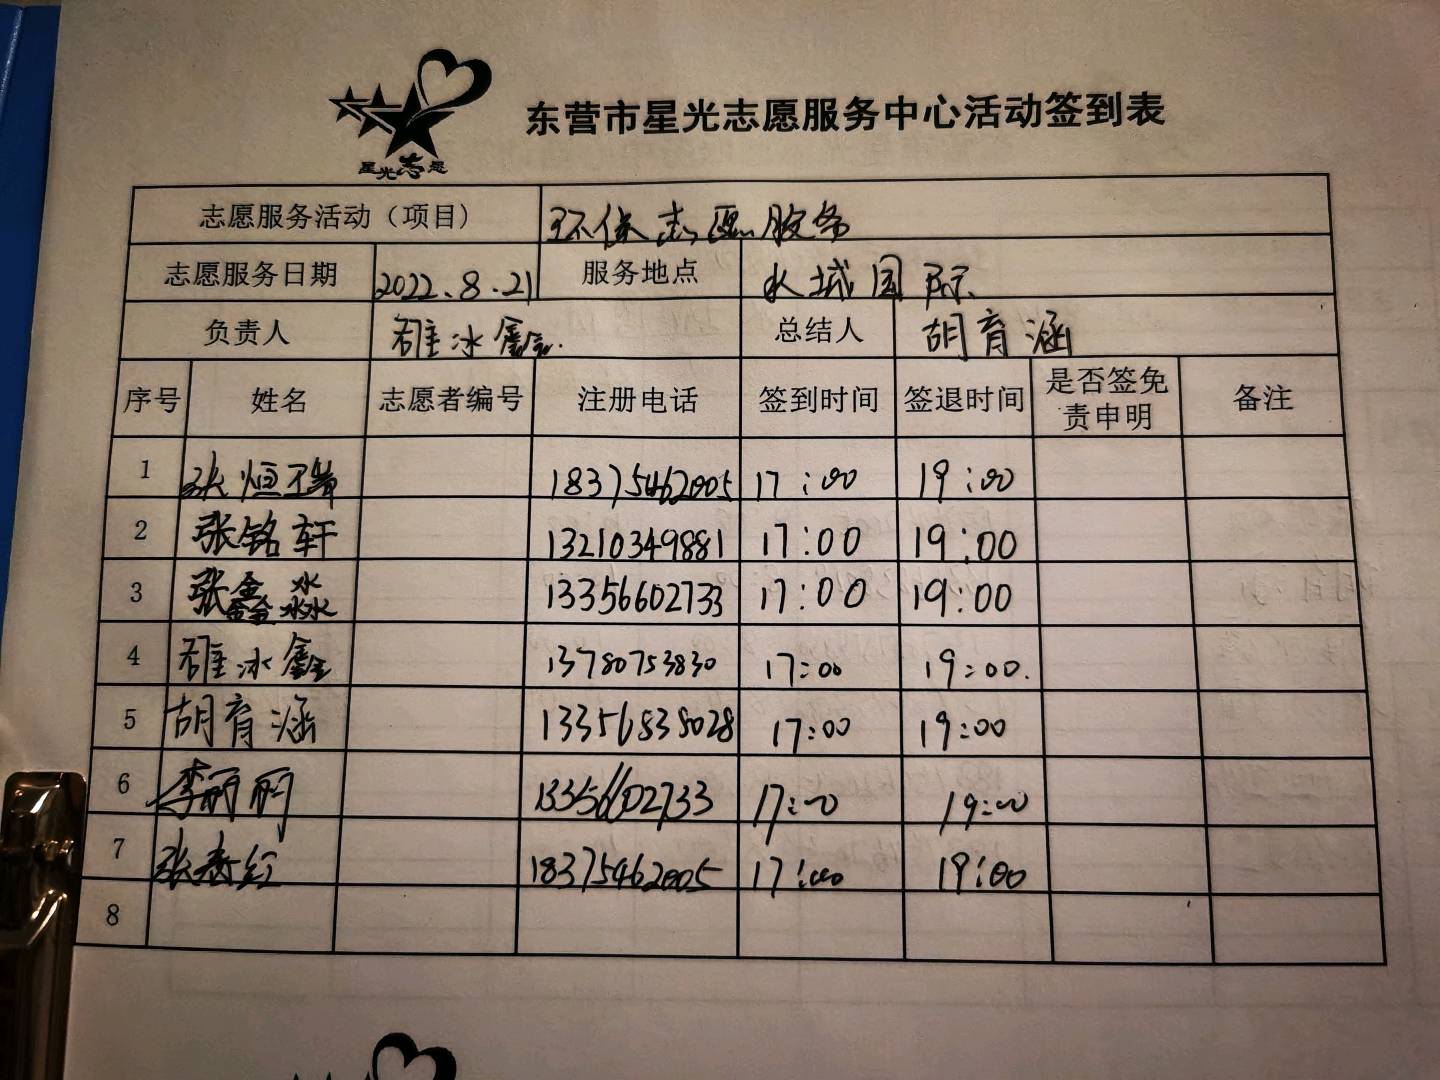 星光志愿
东营市星光志愿服务中心活动签到表
志愿服务活动（项目） 环保志愿服务
志愿服务日期 2022.8.21 服务地点 水城国际
负责人 雒冰鑫. 总结人 胡育涵
序号 姓名 志愿者编号 注册电话 签到时间 签退时间 是否签免责申明 备注
1 张恒瑞 18375462005 17:00 19:00
2 张铭轩 13210349881 17:00 19:00
3 张鑫淼 13356602733 17:00 19:00
4 雒冰鑫 13780753830 17:00 19:00.
5 胡育涵 13356838028 17:00 19:00
6 李丽丽 13356602733 17:00 19:00
7 张春红 18375462005 17:00 19:00
8